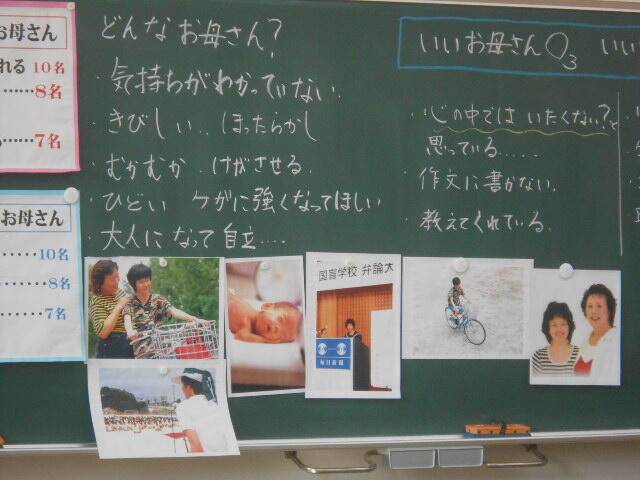 お母さん
れる 10名
……8名
……7名
お母さん
……10名
……8名
……7名
どんなお母さん?
・気持ちがわかっていない.
・きびしい.. ほったらかし
・むかむか .けがさせる.
・ひどい ケガに強くなってほしい
・大人になって自立....
いいお母さん
いい
・心の中では いたくない?と
思っている.....
・作文に書かない.
・教えてくれている.
全国盲学校 弁論大
毎日新聞